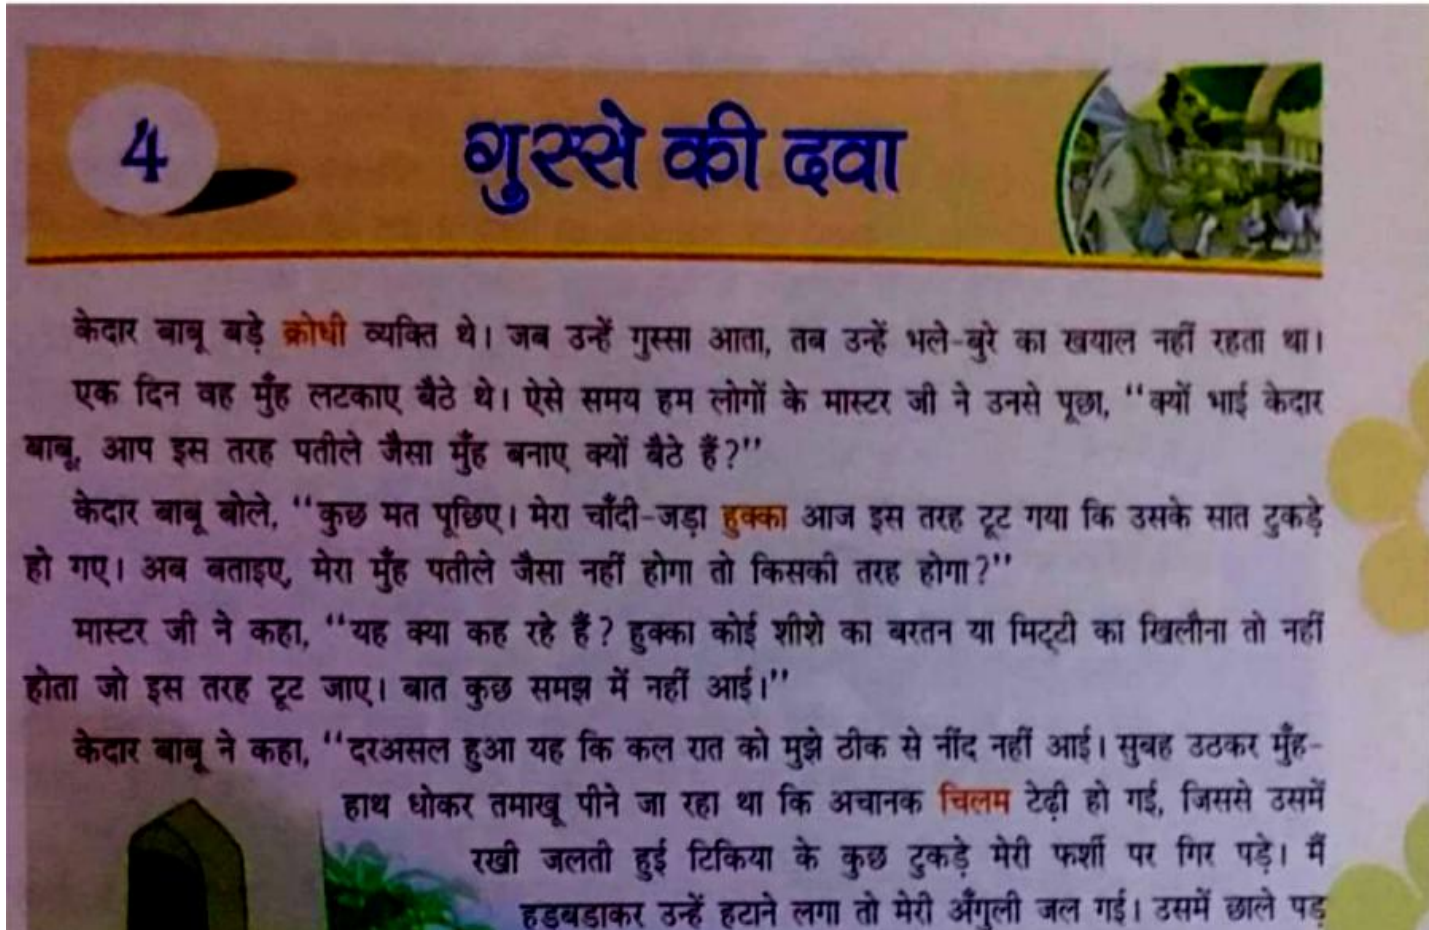 4
गुस्से की दवा
केदार बाबू बड़े क्रोधी व्यक्ति थे। जब उन्हें गुस्सा आता, तब उन्हें भले-बुरे का खयाल नहीं रहता था।
एक दिन वह मुँह लटकाए बैठे थे। ऐसे समय हम लोगों के मास्टर जी ने उनसे पूछा, ‘‘क्यों भाई केदार
बाबू, आप इस तरह पतीले जैसा मुँह बनाए क्यों बैठे हैं?’’
केदार बाबू बोले, ‘‘कुछ मत पूछिए। मेरा चाँदी-जड़ा हुक्का आज इस तरह टूट गया कि उसके सात टुकड़े
हो गए। अब बताइए, मेरा मुँह पतीले जैसा नहीं होगा तो किसकी तरह होगा?’’
मास्टर जी ने कहा, ‘‘यह क्या कह रहे हैं? हुक्का कोई शीशे का बरतन या मिट्टी का खिलौना तो नहीं
होता जो इस तरह टूट जाए। बात कुछ समझ में नहीं आई।’’
केदार बाबू ने कहा, ‘‘दरअसल हुआ यह कि कल रात को मुझे ठीक से नींद नहीं आई। सुबह उठकर मुँह-
हाथ धोकर तमाखू पीने जा रहा था कि अचानक चिलम टेढ़ी हो गई, जिससे उसमें
रखी जलती हुई टिकिया के कुछ टुकड़े मेरी फर्शी पर गिर पड़े। मैं
हड़बड़ाकर उन्हें हटाने लगा तो मेरी अँगुली जल गई। उसमें छाले पड़